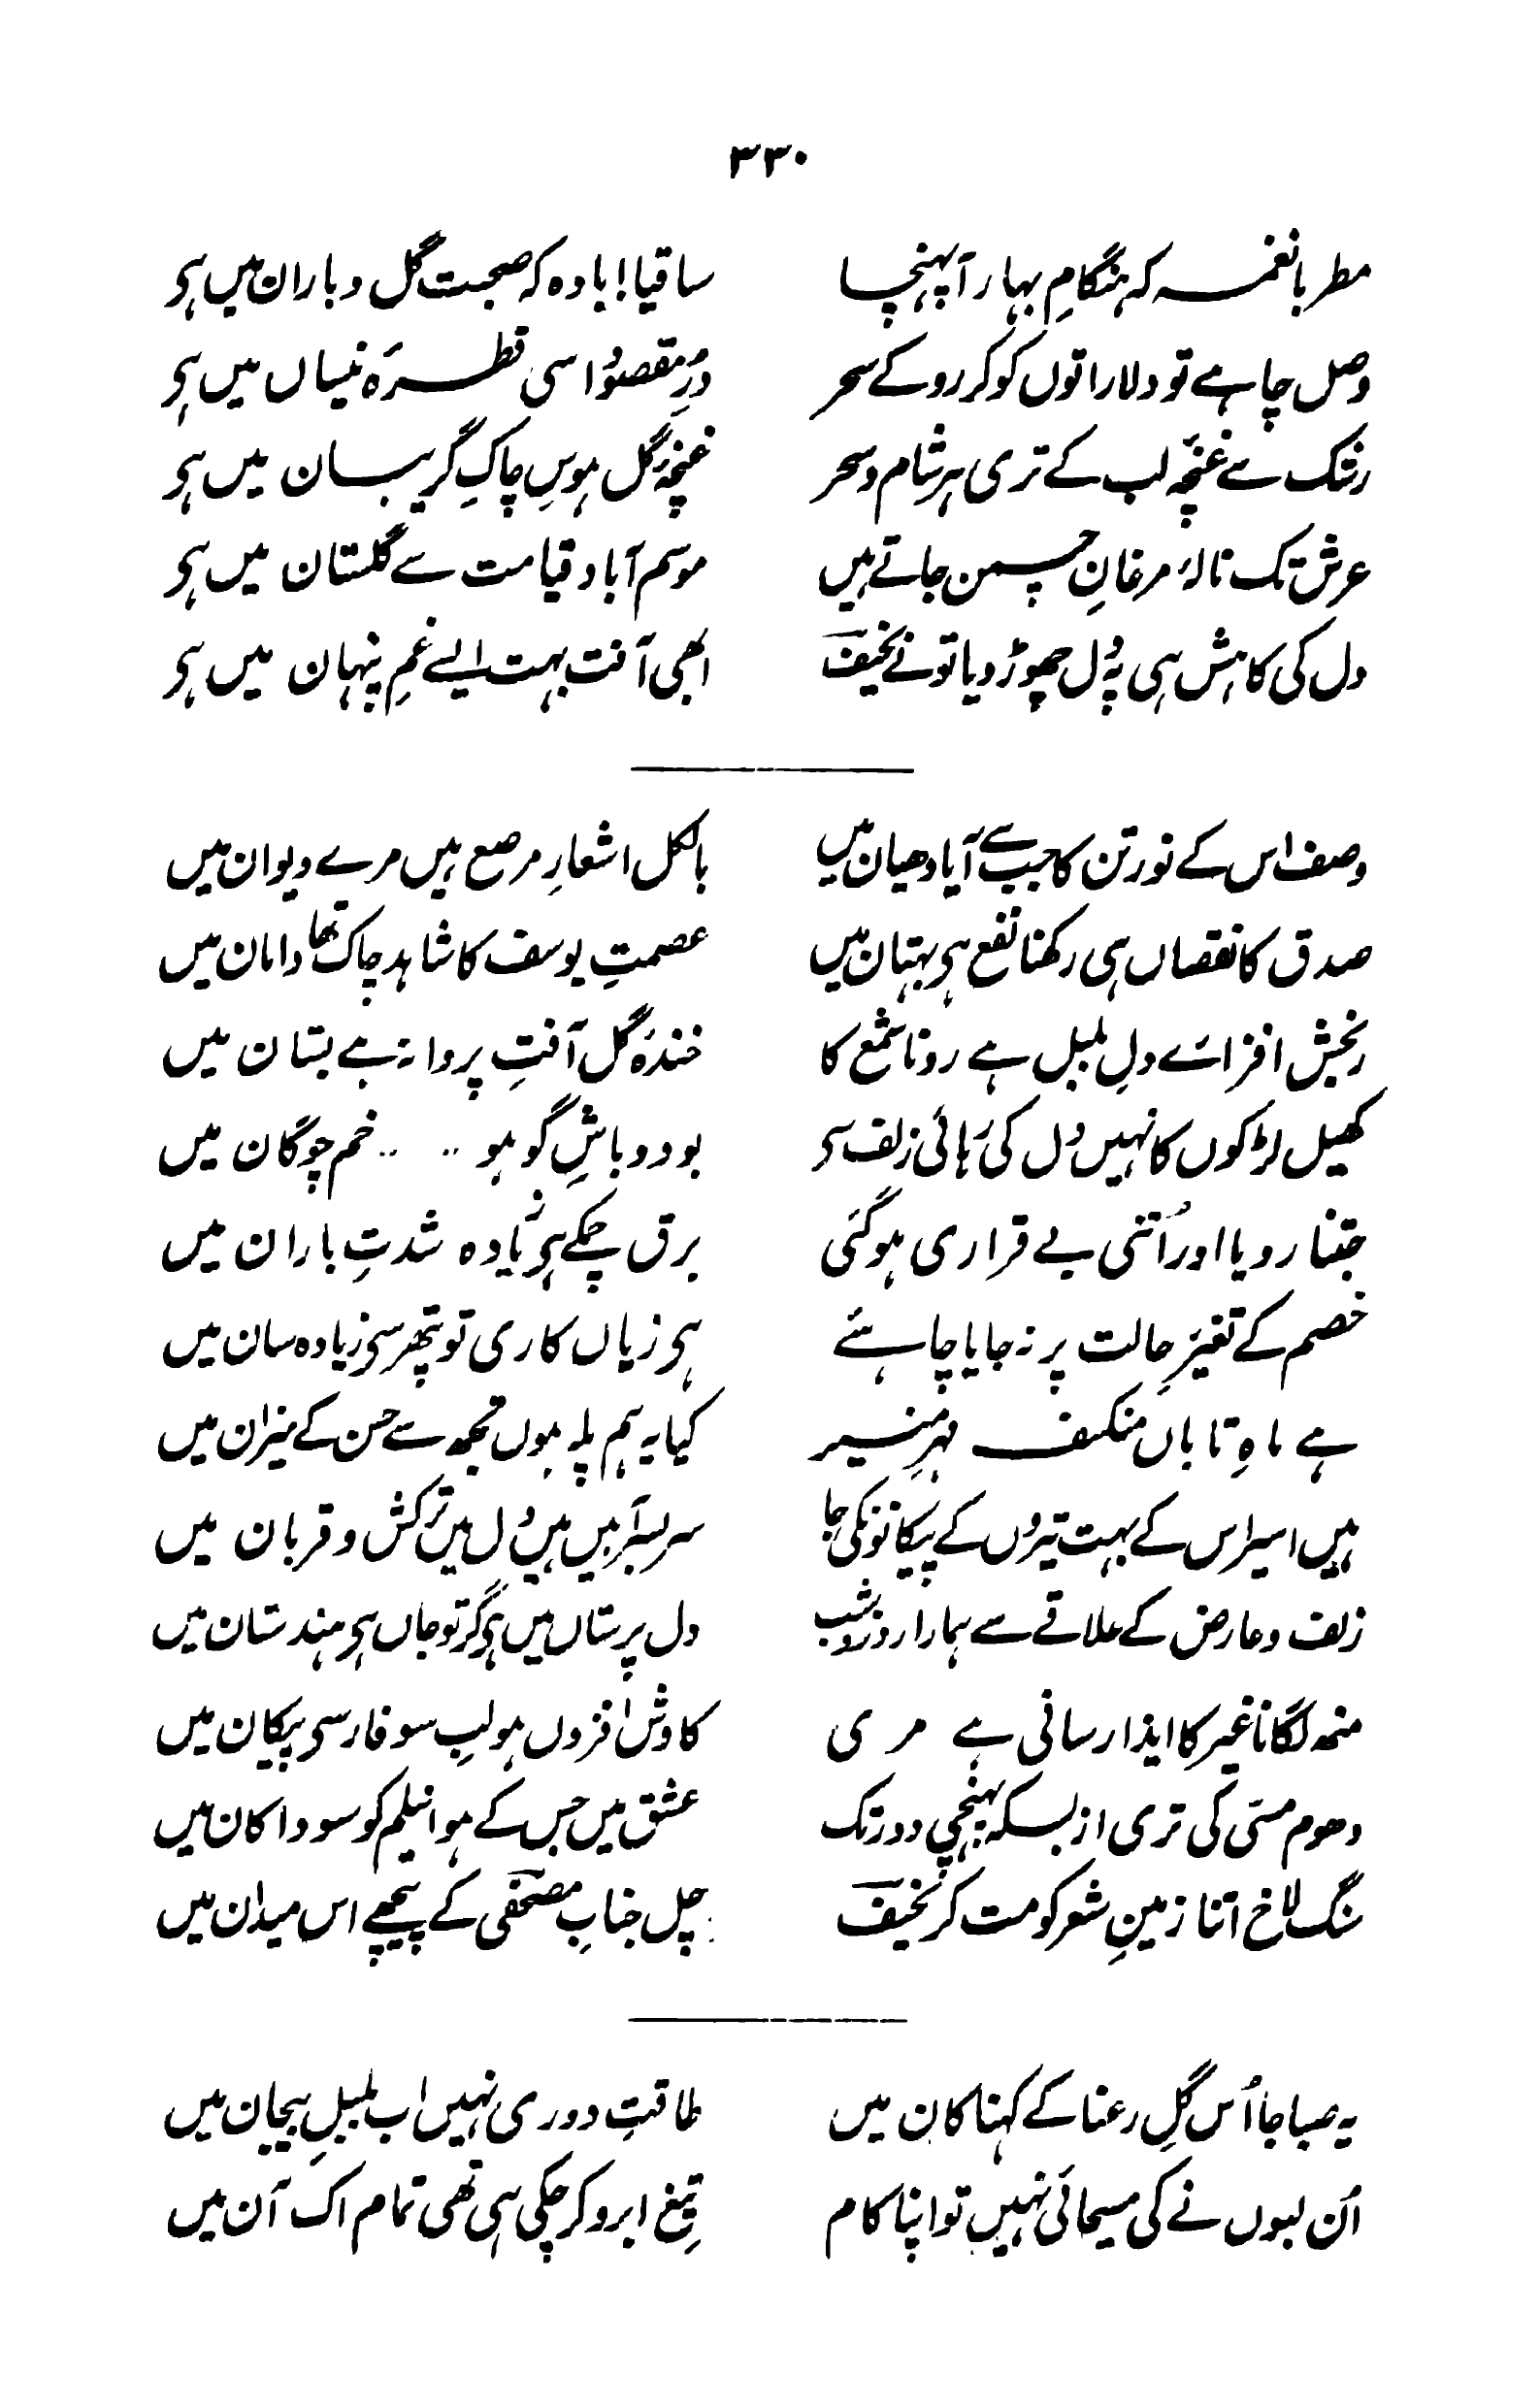 ۳۳۰
مطربا نغمہ کہ ہنگامِ بہار آ پہنچا ساقیا! بادہ کہ صحبت گل و باران میں ہی
وصل چاہے تو دلا راتوں کو کر رو کے سحر دُرِ مقصود اسی قطرۂ نیساں میں ہی
رشک سے غنچۂ لب کے تری ہر شام و سحر غنچۂ گل ہوسِ چاکِ گریبان میں ہی
عرش تک نالۂ مرغانِ چمن جاتے ہیں موسم آباد قیامت سے گلستان میں ہی
دل کی کاہش ہی پہ دل چھوڑ دیا تو نے نحیفؔ ابھی آفت بہت ایسے غمِ پنہان میں ہی
وصف اس کے نورتن کا جب سے آیا دھیان میں بالکل اشعارِ مرصع ہیں مرے دیوان میں
صدق کا نقصاں ہی رکھنا نفع ہی بہتان میں عصمتِ یوسف کا شاہد چاک تھا دامان میں
رنجش افزائے دلِ بلبل ہے رونا شمع کا خندۂ گل آفتِ پروانہ ہے بستان میں
کھیل لڑکوں کا نہیں دل کی رہائی زلف سی بود و باشِ گو ہو .. .. خم چوگان میں
جتنا رویا اور اُتنی بے قراری ہو گئی برق چمکے ہی زیادہ شدتِ باران میں
خصم کے تغیرِ حالت پر نہ جایا چاہئے ہی زیاں کاری تو پتھر سی زیادہ سان میں
ہے ماہِ تاباں منکسف مہرِ منیر کیا یہ ہم پلہ ہوں تجھ سے حسن کے میزان میں
ہیں اسیر اس کے بہت تیروں کے پیکانوں کی جا سر بسر ہیں ہیں دل میں ترکش و قربان میں
زلف و عارض کے علاقے سے ہمارا روز و شب دل پرستاں میں ہی گر تو جاں ہی ہندستان میں
منہ لگانا غیر کا ایذا رسانی ہے مری کاوش افزوں ہو لبِ سوفار سی پیکان میں
دھوم مسّی کی تری از بسکہ پہنچی دور تک عشق میں جس کے ہوا نیلم کو سودا کان میں
سنگ لاخ اتنا زمینِ شعر کو مت کر نحیفؔ چل جنابِ مصحفی کے پیچھے اس میدان میں
یہ صبا جا اُس گلِ رعنا کے کہنا کان میں طاقتِ دوری نہیں اب بلبلِ بیجان میں
اُن لبوں نے کی مسیحائی نہیں تو اپنا کام تیغِ ابرو کر چکی ہی تھی تمام اک آن میں